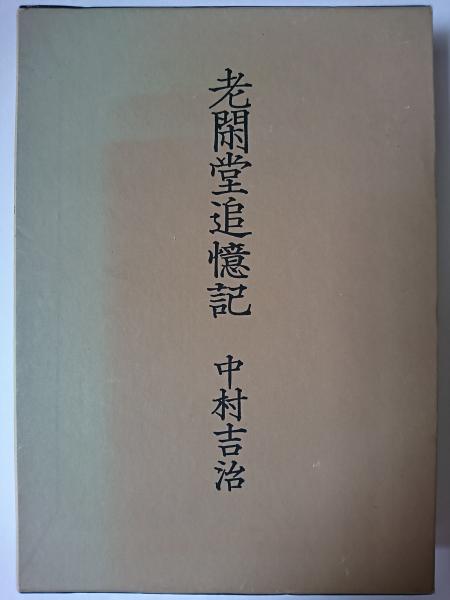 老閑堂追憶記
中村吉治